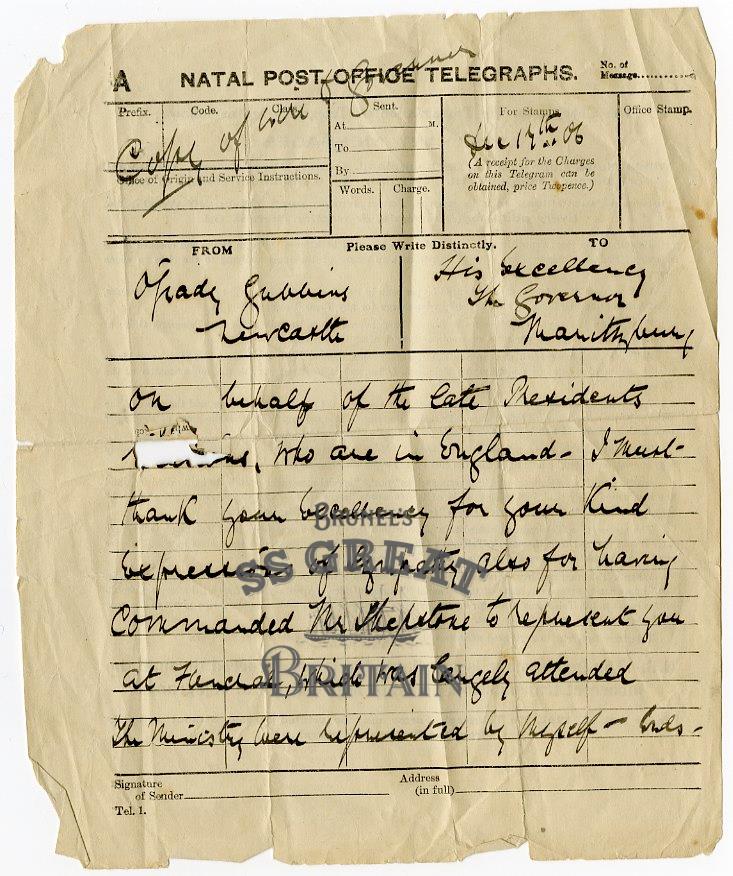 A NATAL POST OFFICE TELEGRAPHS.
No. of Message
Prefix. Code. Class. Sent. For Stamps. Office Stamp.
Copy of wire to Governor
At M.
To
By
Dec 17th 06
(A receipt for the Charges
on this Telegram can be
obtained, price Twopence.)
Office of Origin and Service Instructions.
Words. Charge.
FROM Please Write Distinctly. TO
O'Grady Gubbins
Newcastle
His Excellency
The Governor
Maritzburg
On behalf of the late Presidents
who are in England - I must
thank your Excellency for your kind
Expression of Sympathy also for having
Commanded Mr Shepstone to represent you
at Funeral, which was largely attended
The Ministry were represented by myself - Ends -
BRUNEL'S
SS GREAT
BRITAIN
Signature
of Sender
Address
(in full)
Tel. 1.